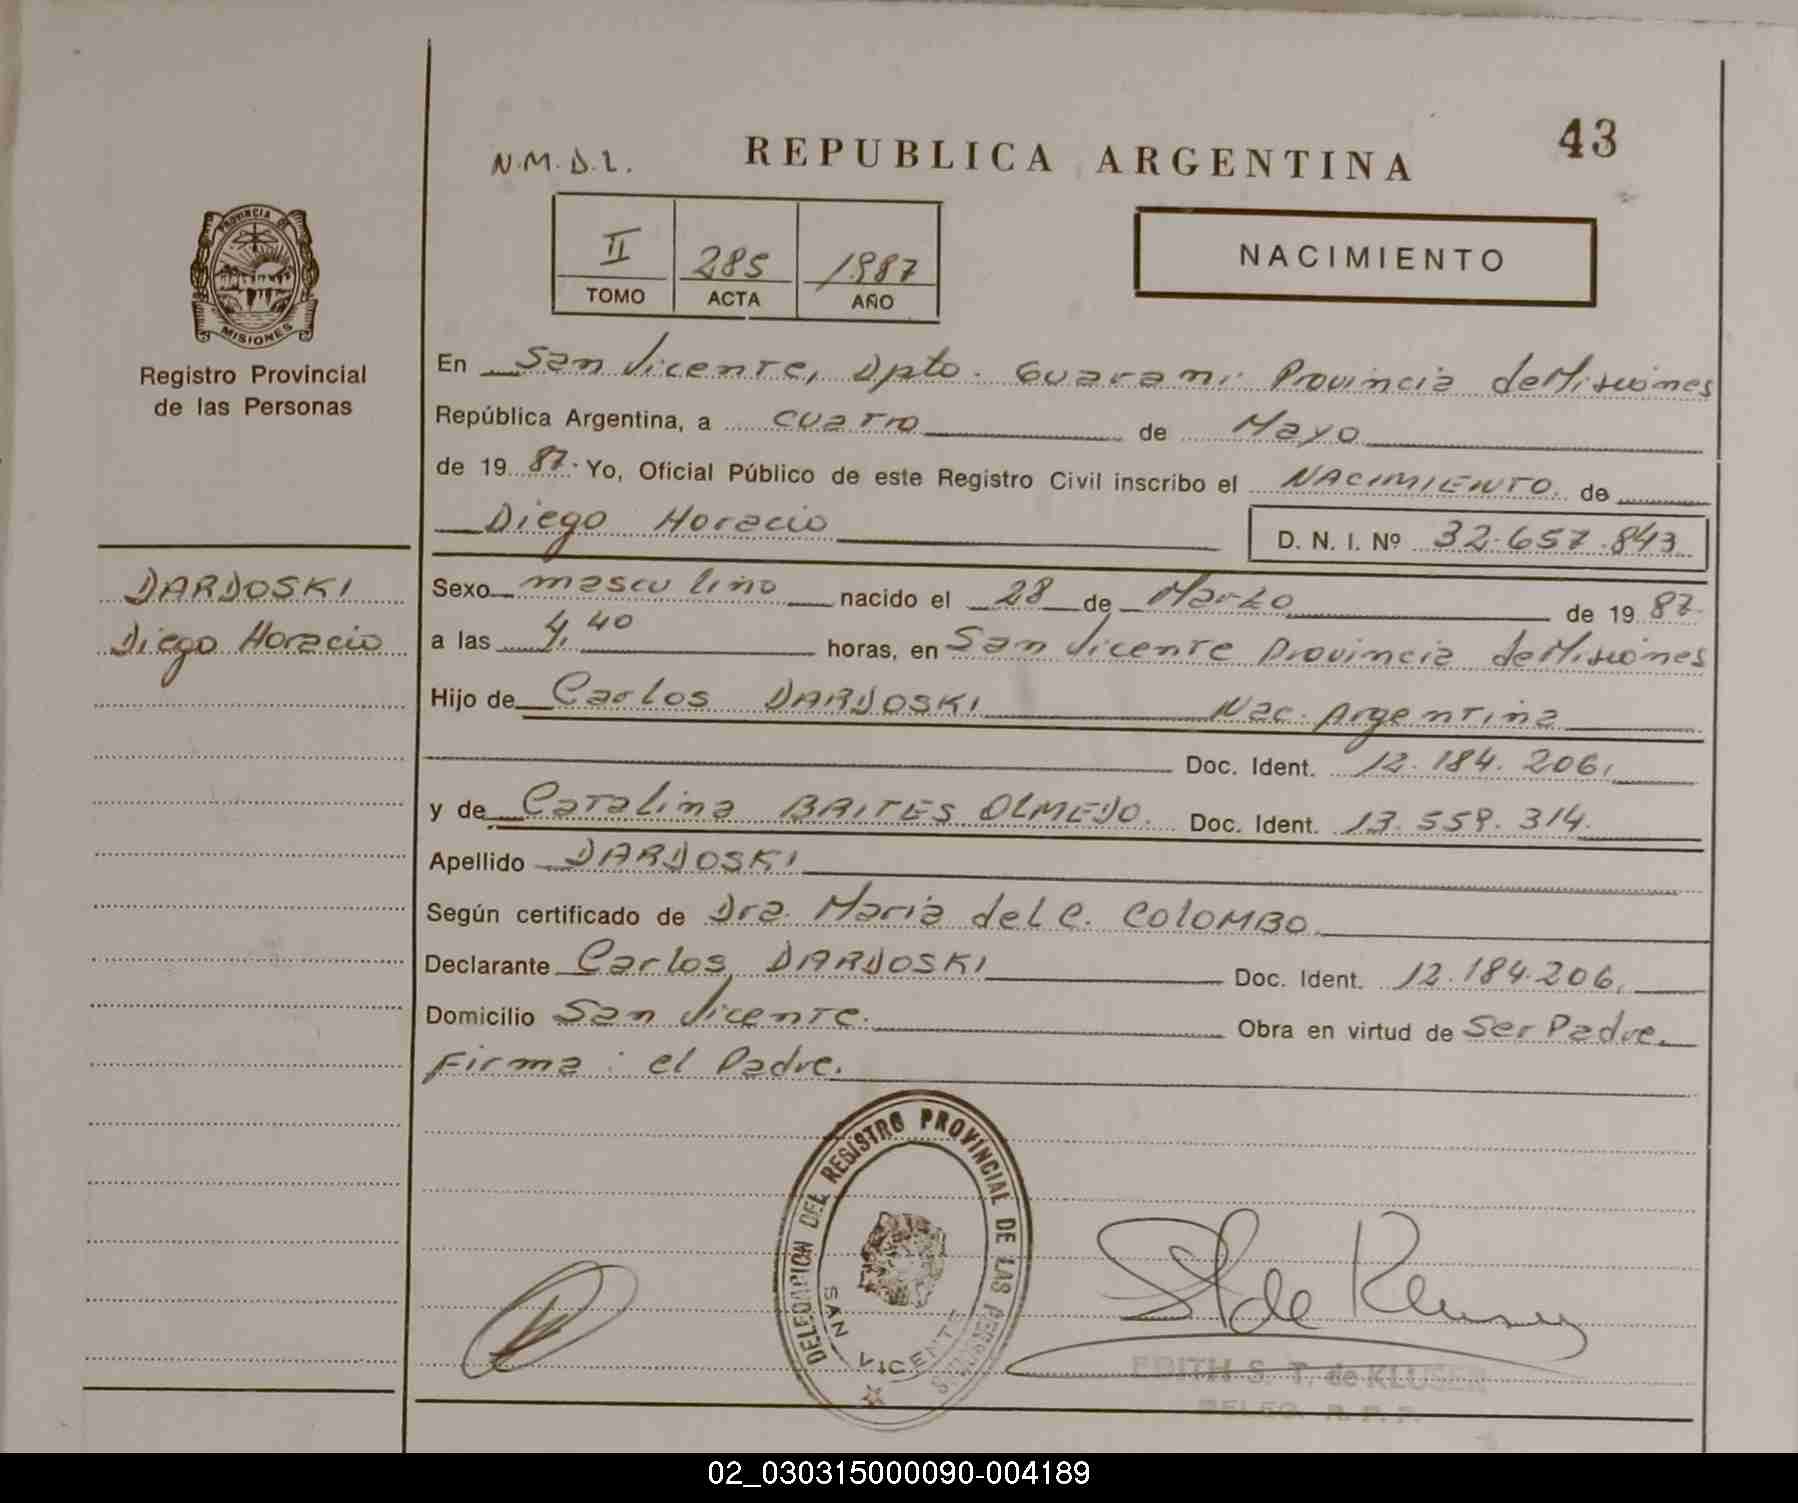 43
REPUBLICA ARGENTINA
N.M.D.L.
NACIMIENTO
II 285 1987
TOMO ACTA AÑO
PROVINCIA DE
MISIONES
Registro Provincial
de las Personas
En San Vicente, Dpto. Guarani Provincia de Misiones
República Argentina, a cuatro de Mayo
de 1987. Yo, Oficial Público de este Registro Civil inscribo el NACIMIENTO. de
Diego Horacio D. N. I. Nº 32.657.843
DARDOSKI
Diego Horacio
Sexo masculino nacido el 28 de Marzo de 1987.
a las 4,40 horas, en San Vicente Provincia de Misiones
Hijo de Carlos DARDOSKI Nac. Argentina
Doc. Ident. 12.184.206.
y de Catalina BRITES OLMEDO. Doc. Ident. 13.559.314.
Apellido DARDOSKI
Según certificado de Dra. Maria del C. COLOMBO
Declarante Carlos DARDOSKI Doc. Ident. 12.184.206.
Domicilio San Vicente. Obra en virtud de Ser Padre.
Firma: el Padre.
DELEGACION DEL REGISTRO PROVINCIAL DE LAS
SAN VICENTE
ST de Kluser
EDITH S. T. de KLUSER
DELEG. R. P. P.
02_030315000090-004189